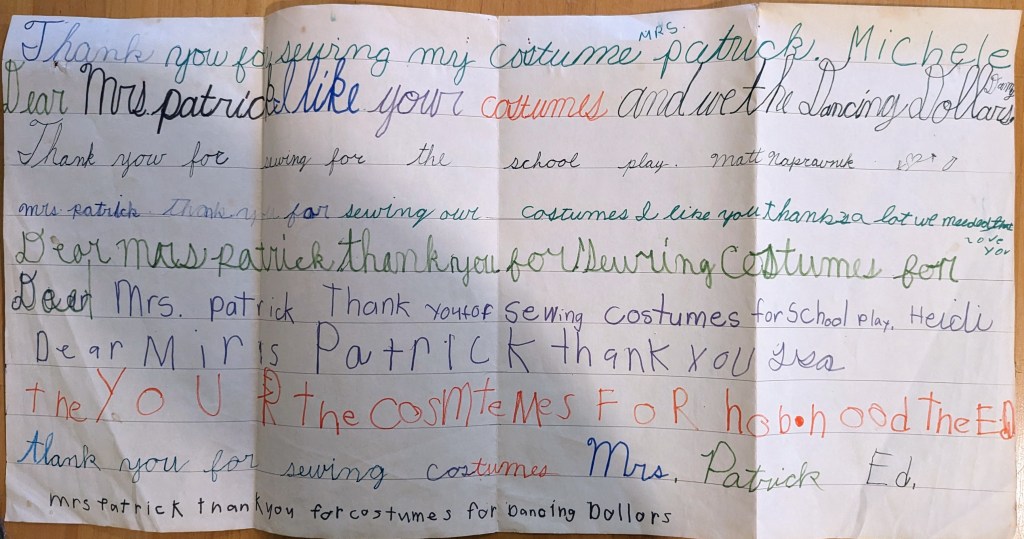 Thank you fo sewing my costume MRS. patrick. Michele
Dear Mrs patrick I like your costumes and we the Dancing Dollars.
Thank you for sewing for the school play. Matt Napravnik
mrs patrick thank you for sewing our costumes I like you thanks a lot we needed that
love you
Dear mrs patrick thank you for sewring costumes for
Dear Mrs. patrick Thank you fof sewing costumes for School play. Heidi
Dear Mirs Patrick thank you
the YOUR the cosmtemes FoR hobon ood The ED
thank you for sewing costumes Mrs. Patrick Ed.
mrs patrick thank you for costumes for Dancing Dollors